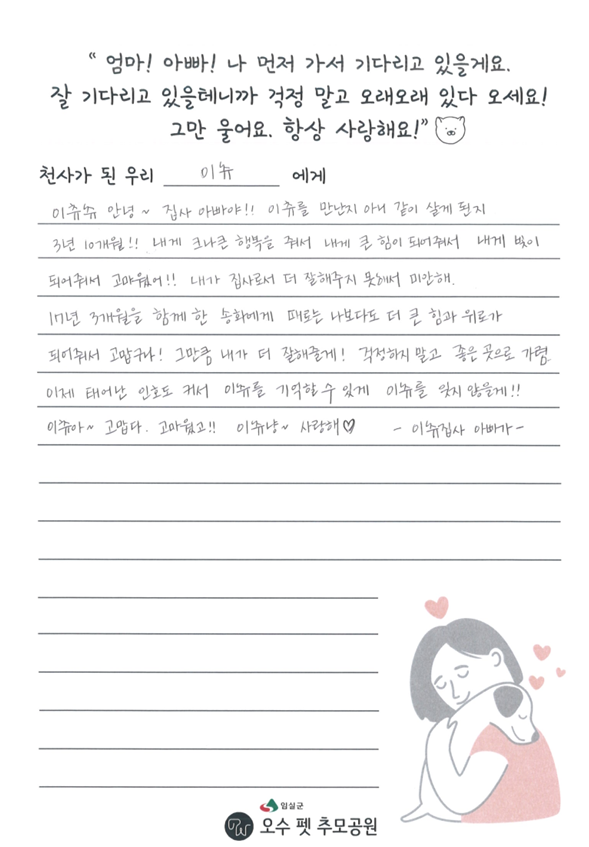 “ 엄마! 아빠! 나 먼저 가서 기다리고 있을게요.
잘 기다리고 있을테니까 걱정 말고 오래오래 있다 오세요!
그만 울어요. 항상 사랑해요!”
천사가 된 우리 이쮸 에게
이쮸쮸 안녕~ 집사 아빠야!! 이쮸를 만난지 아니 같이 살게 된지
3년 10개월!! 내게 크나큰 행복을 줘서 내게 큰 힘이 되어줘서 내게 빛이
되어줘서 고마웠어!! 내가 집사로서 더 잘해주지 못해서 미안해.
17년 3개월을 함께 한 송화에게 때로는 나보다도 더 큰 힘과 위로가
되어줘서 고맙구나! 그만큼 내가 더 잘해줄게! 걱정하지 말고 좋은 곳으로 가렴
이제 태어난 인호도 커서 이쮸를 기억할 수 있게 이쮸를 잊지 않을게!!
이쮸아~ 고맙다. 고마웠고!! 이쮸냥~ 사랑해♡ - 이쮸집사 아빠가 -
임실군
오수 펫 추모공원